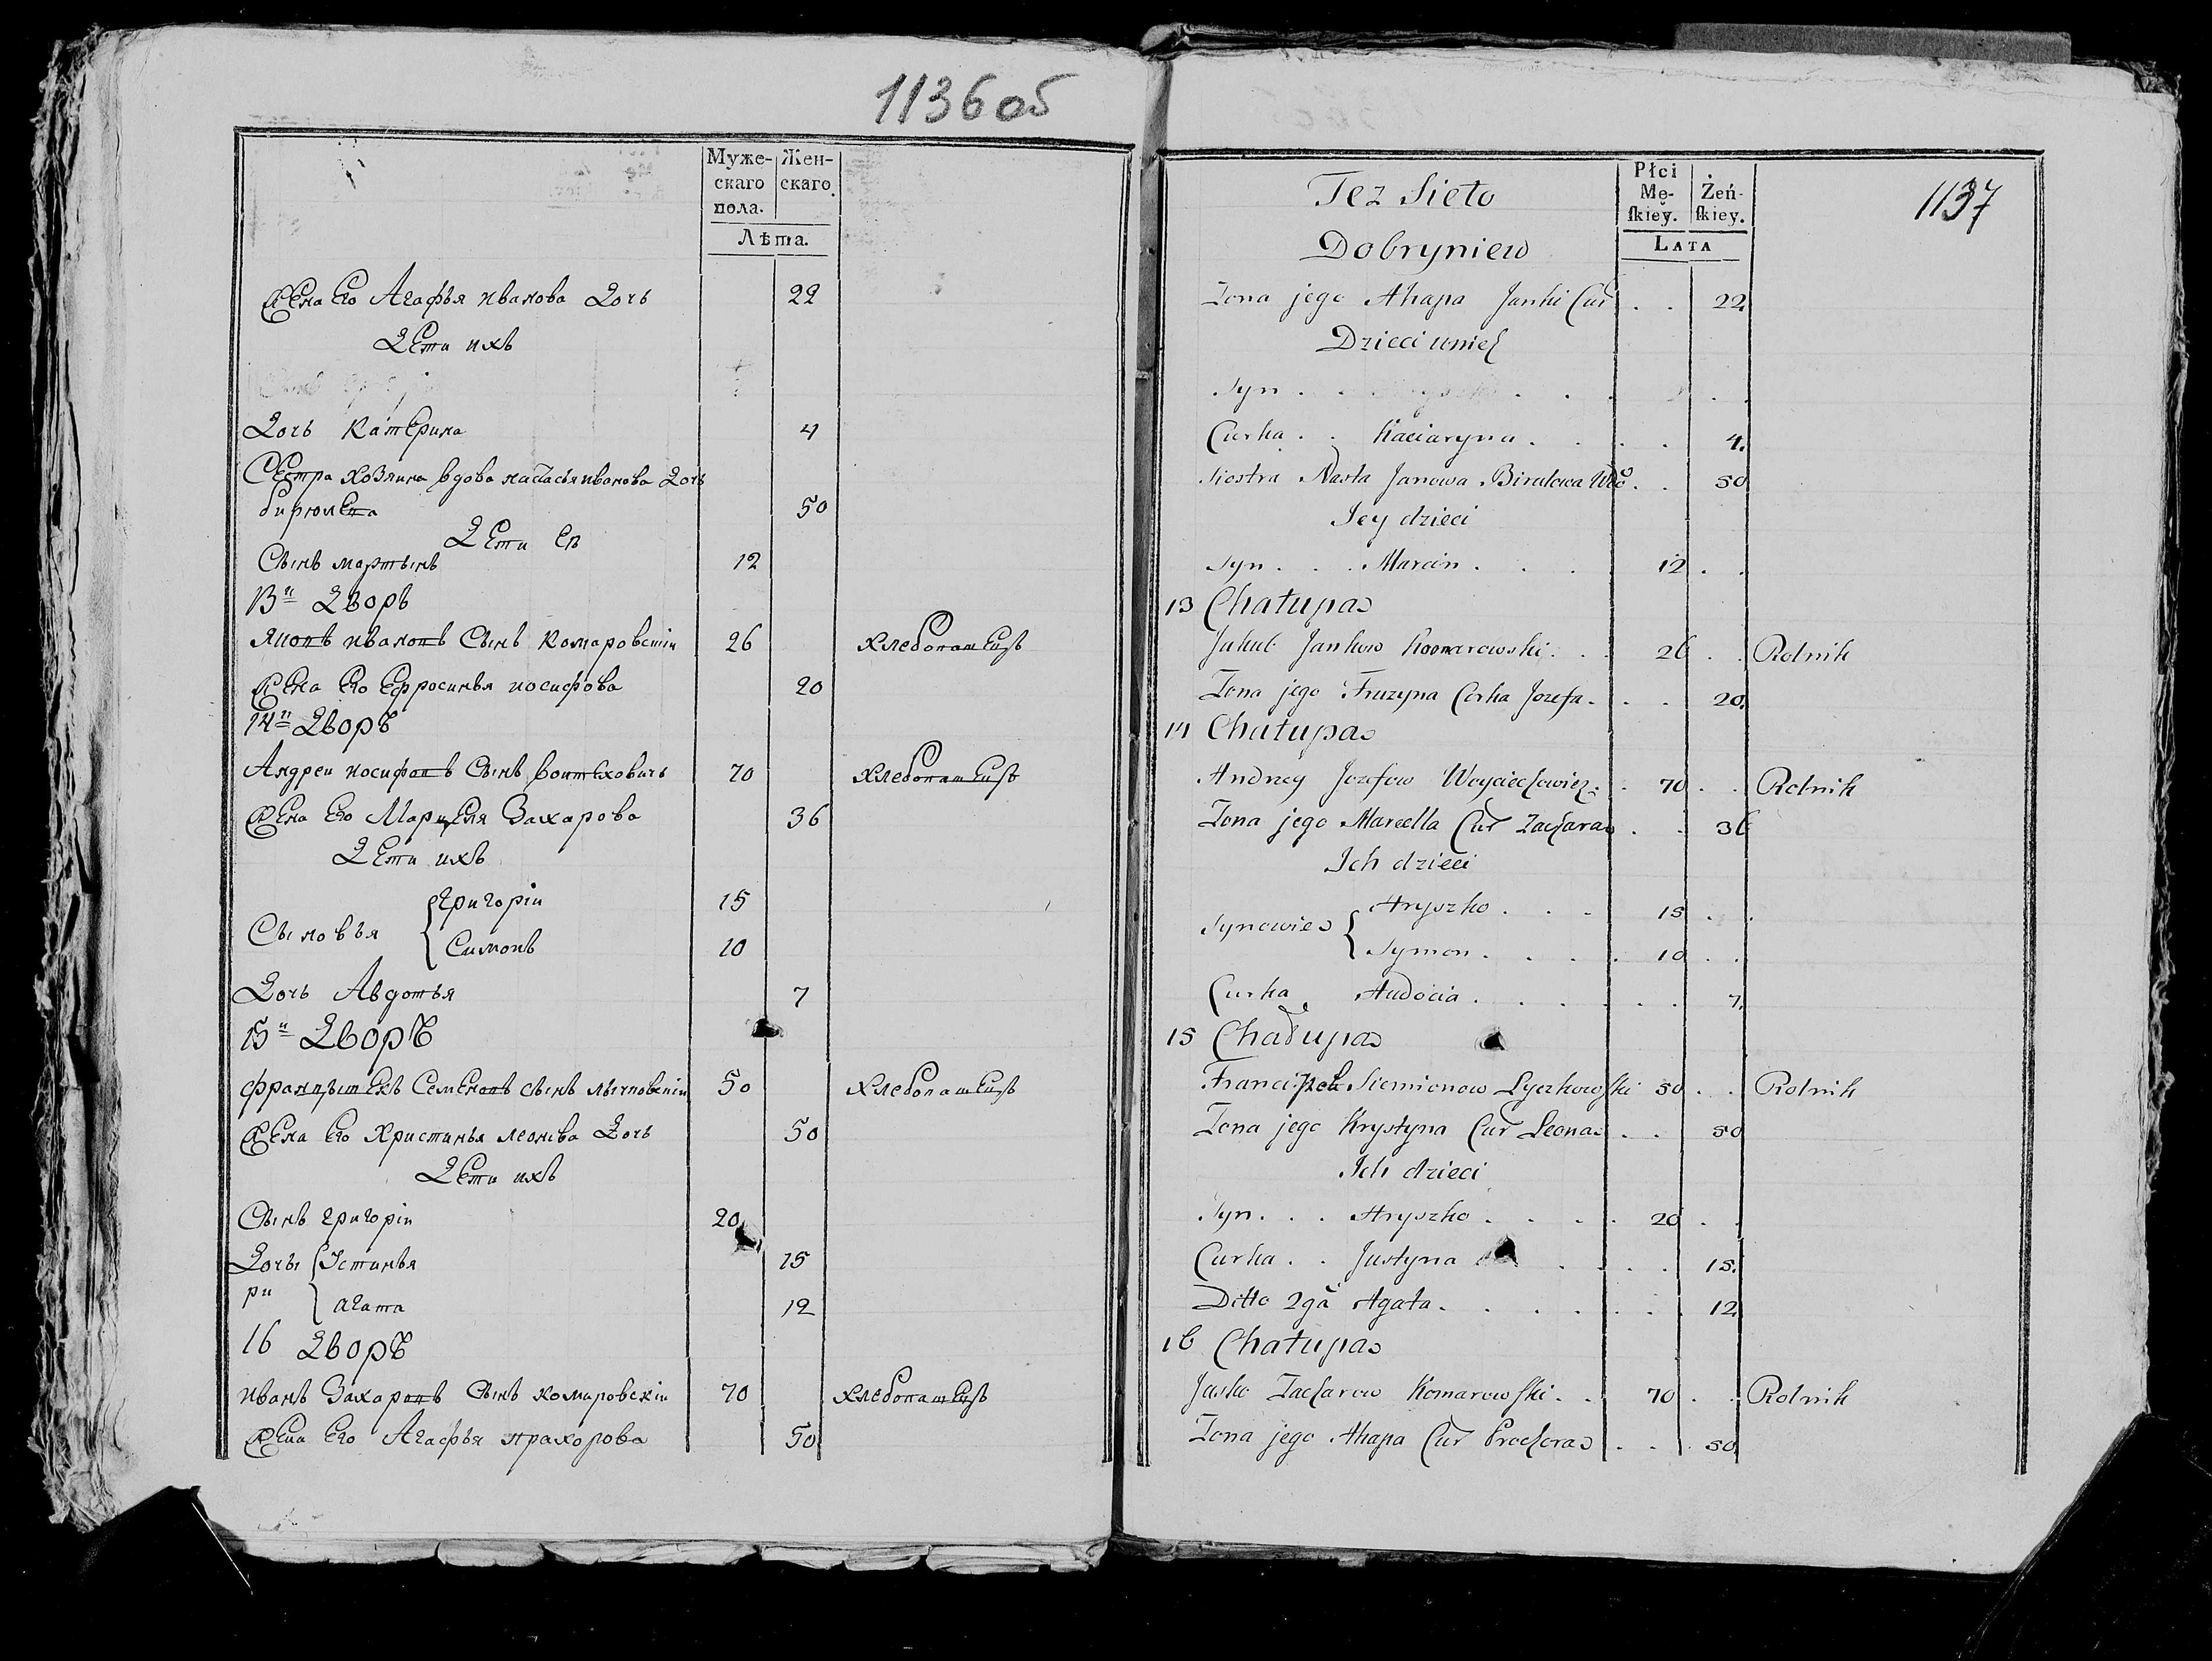 1136 об
Муже-
скаго
пола.
Жен-
скаго.
Лѣта.
Жена Его Агафья Иванова Дочь 22
Дети ихъ
Дочь Катерина 4
Сестра хозяина вдова настасья иванова Дочь
бирюлева 50
Дети Ея
Сынъ мартынъ 12
13й Дворъ
Яковъ ивановъ Сынъ комаровскіи 26 хлебопашецъ
Жена Его Ефросинья иосифова 20
14й Дворъ
Андреи иосифовъ Сынъ воитеховичь 70 хлебопашецъ
Жена Его Марцеля Захарова 36
Дети ихъ
Сыновья григоріи 15
Симонъ 10
Дочь Авдотья 7
15й Дворъ
францышекъ Семеновъ сынъ лычковскіи 50 хлебопашецъ
Жена Его Христинья леонова Дочь 50
Дети ихъ
Сынъ григоріи 20
Дочьри Устинья 15
агата 12
16 Дворъ
иванъ Захаровъ Сынъ комаровскіи 70 хлебопашецъ
Жена Его Агафья прахорова 50
1137
Też Sieło
Dobryniew
Płci
Mę-
skiey.
Żeń-
skiey.
LATA
Zona jego Ahapa Janki Cur . . 22.
Dzieci u nich
Syn . .
Curka . . Kaciaryna . . . . 4.
Siostra Nasta Janowa Birulowa Wdo . . 50
Jey dzieci
Syn . . . Marcin . . . 12 . .
13 Chałupa
Jakub Jankow Komarowski . . . 26 . . Rolnik
Zona jego Fruzyna Corka Jozefa . . . 20.
14 Chałupa
Andrzey Jozefow Woyciechowicz . . 70 . . Rolnik
Zona jego Marcella Cur Zachara . . 36
Ich dzieci
Synowie Hryszko . . . 15 . .
Symon . . . . 10 . .
Curka Audocia . . . . . . 7.
15 Chałupa
Franciszek Siemionow Lyczkowski 50 . . Rolnik
Zona jego Krystyna Cur Leona . . 50
Ich dzieci
Syn . . . Hryszko . . . . 20 . .
Curka . . Justyna . . . . 15.
Ditto 2ga Agata . . . . . . . 12
16 Chałupa
Jasko Zacharow Komarowski . . 70 . . Rolnik
Zona jego Ahapa Cur Prochora . . . 50